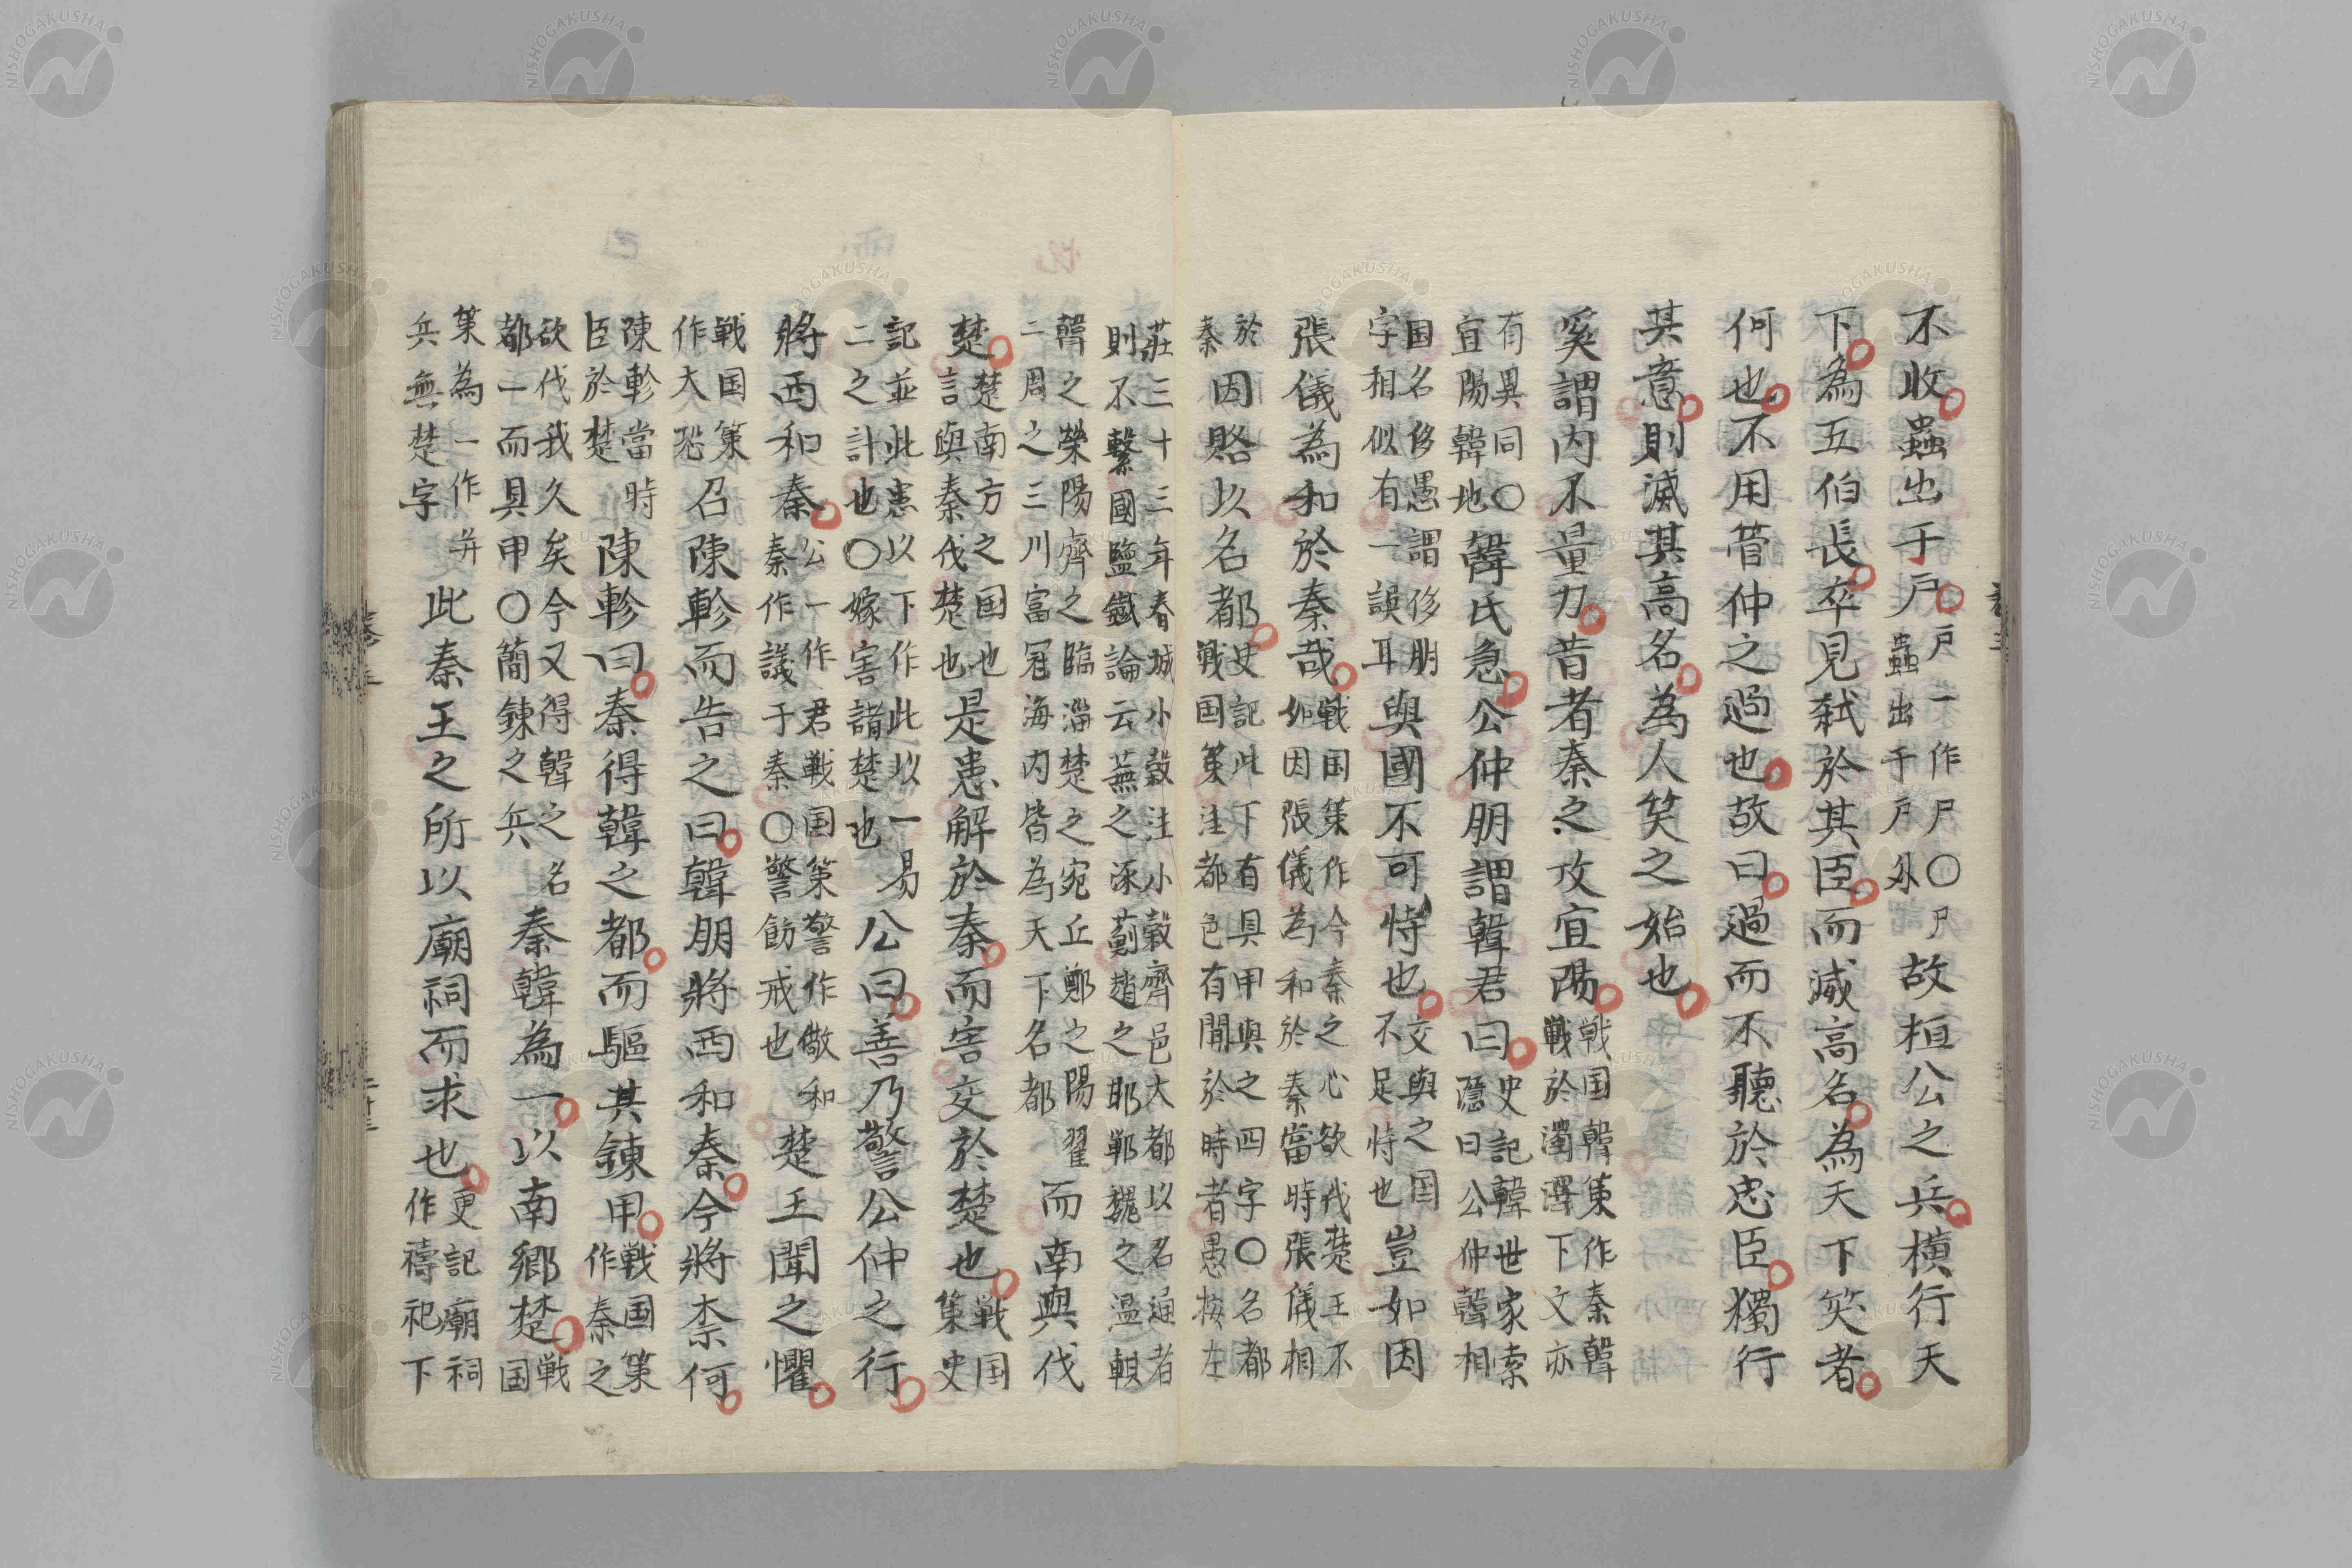 不收蟲出于戸戸一作尸〇尸蟲出于戸外故桓公之兵橫行天
下為五伯長卒見弑於其臣而滅高名為天下笑者
何也不用管仲之過也故曰過而不聽於忠臣獨行
其意則滅其高名為人笑之始也
奚謂内不量力昔者秦之攻宜陽戦国韓策作秦韓戦於濁澤下文亦
有異同〇宜陽韓地韓氏急公仲朋謂韓君曰史記韓世家索隱曰公仲韓相
国名侈愚謂侈朋字相似有一誤耳與國不可恃也交與之国不足恃也豈如因
張儀為和於秦哉戦国策作今秦之心欲伐楚王不如因張儀為和於秦當時張儀相
於秦因賂以名都史記此下有具甲與之四字〇名都戦国策注都邑有聞於時者愚按左
莊三十三年春城小穀注小穀齊邑大都以名通者則不繫國鹽鐵論云蕪之涿薊趙之耶鄲魏之温軹
韓之滎陽齊之臨淄楚之宛丘鄭之陽翟二周之三川富冠海内皆為天下名都而南與伐
楚楚南方之国也言與秦伐楚也是患解於秦而害交於楚也戦国策史
記並此患以下作此以一易二之計也〇嫁害諸楚也公曰善乃警公仲之行
將西和秦公一作君戦国策警作儆和秦作議于秦〇警飭戒也楚王聞之懼
戦国策作大恐召陳軫而告之曰韓朋將西和秦今將柰何
陳軫當時臣於楚陳軫曰秦得韓之都而驅其錬甲戦国策作秦之
欲伐我久矣今又得韓之名都一而具甲〇簡錬之兵秦韓為一以南鄉楚戦国
策為一作并兵無楚字此秦王之所以廟祠而求也史記廟祠作禱祀下